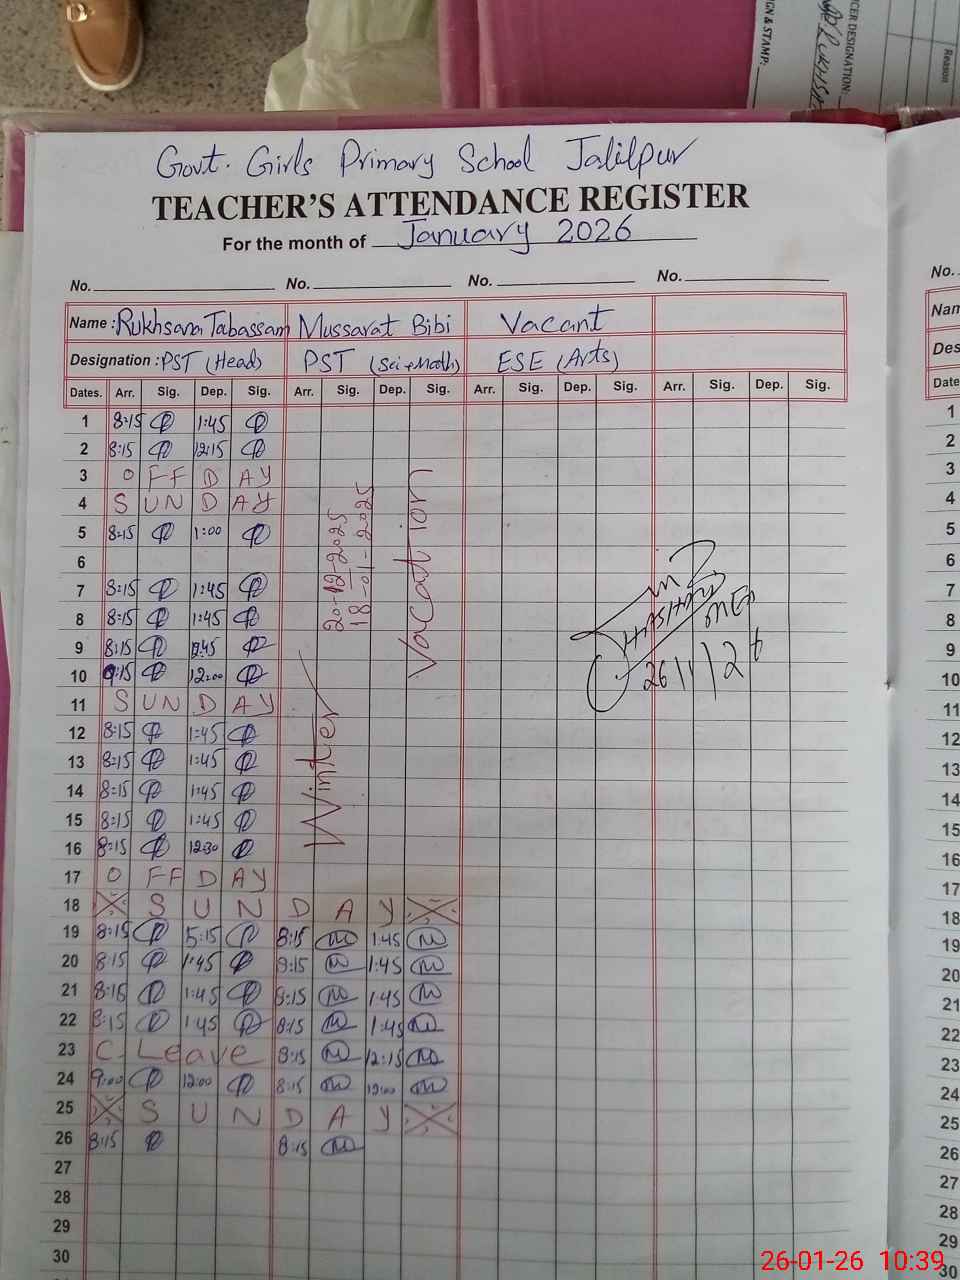 CER DESIGNATION:
GN & STAMP:
Reason
Govt. Girls Primary School Jalilpur
TEACHER'S ATTENDANCE REGISTER
For the month of January 2026
No. No. No. No.
Name : Rukhsana Tabassam Mussarat Bibi Vacant
Designation : PST (Head) PST (Sci+Math) ESE (Arts)
Dates. Arr. Sig. Dep. Sig. Arr. Sig. Dep. Sig. Arr. Sig. Dep. Sig. Arr. Sig. Dep. Sig.
1 8:15 1:45
2 8:15 12:15
3 OFF DAY
4 SUNDAY
5 8:15 1:00
6
7 8:15 1:45
8 8:15 1:45
9 8:15
10 9:15 12:00
11 SUNDAY
12 8:15 1:45
13 8:15 1:45
14 8:15 1:45
15 8:15 1:45
16 8:15 12:30
17 OFF DAY
18 SUNDAY
19 8:15 5:15 8:15 1:45
20 8:15 1:45 8:15 1:45
21 8:15 1:45 8:15 1:45
22 8:15 1:45 8:15 1:45
23 C. Leave 8:15 12:15
24 9:00 12:00 8:15 12:00
25 SUNDAY
26 8:15 8:15
27
28
29
30
Winter Vacation
20-12-2025
18-01-2025
26/1/26
No.
Nam
Des
Date
1
2
3
4
5
6
7
8
9
10
11
12
13
14
15
16
17
18
19
20
21
22
23
24
25
26
27
28
29
30
26-01-26 10:39